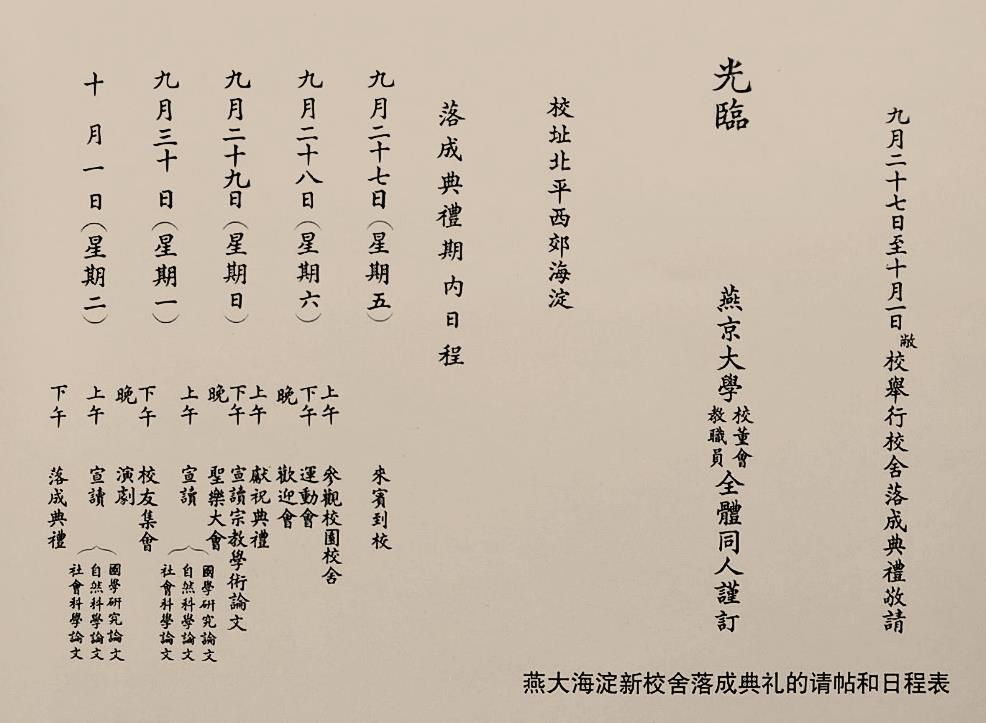 九月二十七日至十月一日敝校舉行校舍落成典禮敬請
光臨
燕京大學校董會教職員全體同人謹訂
校址北平西郊海淀
落成典禮期內日程
九月二十七日(星期五)
來賓到校
九月二十八日(星期六)
上午 參觀校園校舍
下午 運動會
晚 歡迎會
九月二十九日(星期日)
上午 獻祝典禮
下午 宣讀宗教學術論文
晚 聖樂大會
九月三十日(星期一)
上午 宣讀
國學研究論文
自然科學論文
社會科學論文
下午 校友集會
晚 演劇
十月一日(星期二)
上午 宣讀
國學研究論文
自然科學論文
社會科學論文
下午 落成典禮
燕大海淀新校舍落成典礼的请帖和日程表